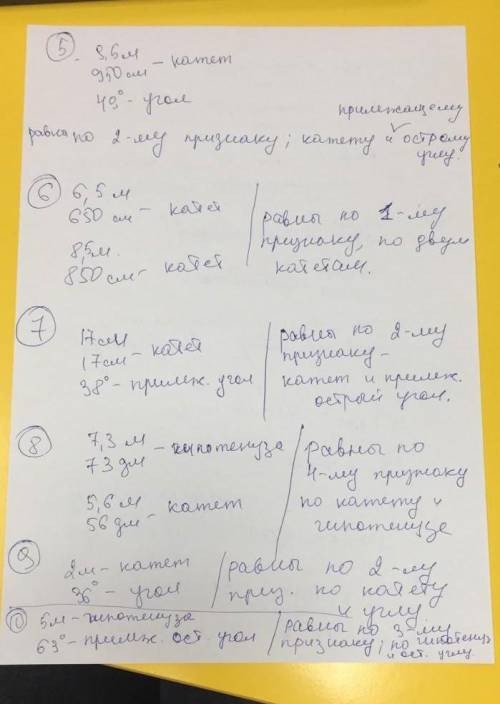 5
9,5 м
950 см - катет
49° - угол
прилежащему
равны по 2-му признаку; катету и острому
углу.
6
6,5 м
650 см - катет
8,5 м.
850 см - катет
равны по 1-му
признаку, по двум
катетам.
7
17 см
17 см - катет
38° - прилеж. угол
равны по 2-му
признаку -
катет и прилеж.
острый угол.
8
7,3 м
73 дм - гипотенуза
5,6 м
56 дм - катет
равны по
4-му признаку
по катету и
гипотенузе
9
2м - катет
36° - угол
равны по 2-му
приз. по катету
и углу
10
5м - гипотенуза
63° - прилеж. ост. угол
равны по 3-му
признаку; по гипотенузе
и ост. углу